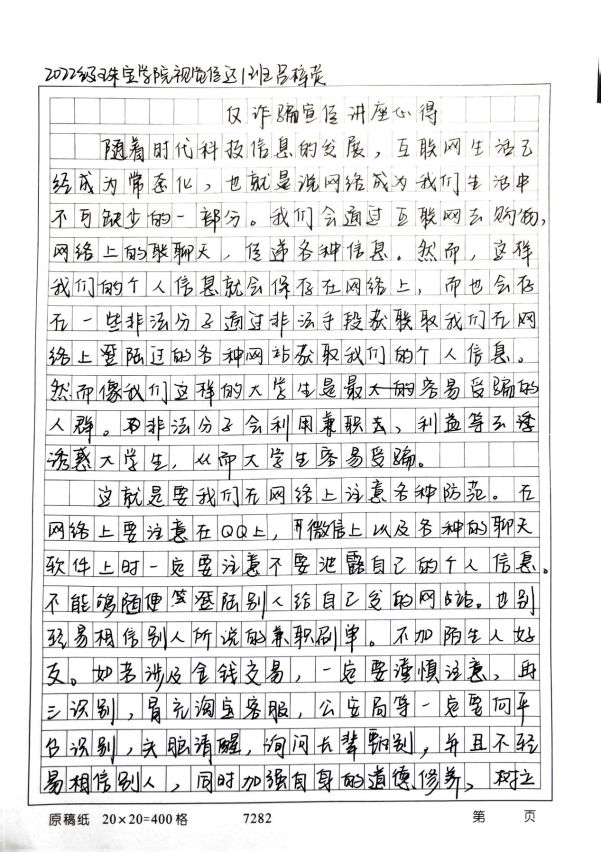 2022级珠宝学院视觉传达1班吕梓荧
反诈骗宣传讲座心得
随着时代科技信息的发展，互联网生活已
经成为常态化，也就是说网络成为我们生活中
不可缺少的一部分。我们会通过互联网去购物，
网络上的联聊天，传递各种信息。然而，这样
我们的个人信息就会保存在网络上，而也会存
在一些非法分子通过非法手段获联取我们在网
络上登陆过的各种网站获取我们的个人信息。
然而像我们这样的大学生是最大的容易受骗的
人群。非法分子会利用兼职去、利益等去诱
诱惑大学生，从而大学生容易受骗。
这就是要我们在网络上注意各种防范。在
网络上要注意在QQ上，微信上以及各种的聊天
软件上时一定要注意不要泄露自己的个人信息。
不能够随便登陆别人给自己发的网站。也别
轻易相信别人所说的兼职刷单。不加陌生人好
友。如若涉及金钱交易，一定要谨慎注意，再
三识别，冒充淘宝客服，公安局等一定要向平
台识别，头脑清醒，询问长辈甄别，并且不轻
易相信别人，同时加强自身的道德修养，树立
原稿纸 20×20=400格 7282 第 页